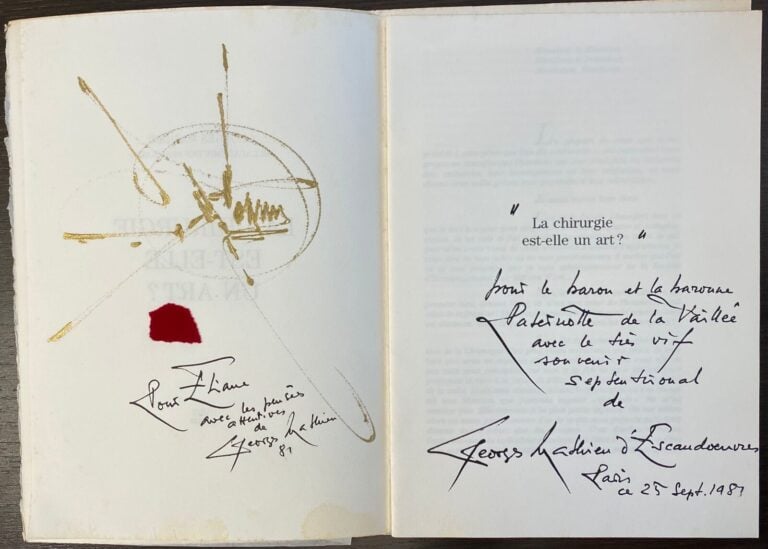 Pour Eliane
avec les pensées
attentives
de
Georges Mathieu
81
"
La chirurgie
est-elle un art ? "
pour le baron et la baronne
Paternotte de la Vaillée
avec le très vif
souvenir
septentrional
de
Georges Mathieu d'Escaudoeuvres
Paris
ce 25 Sept. 1981